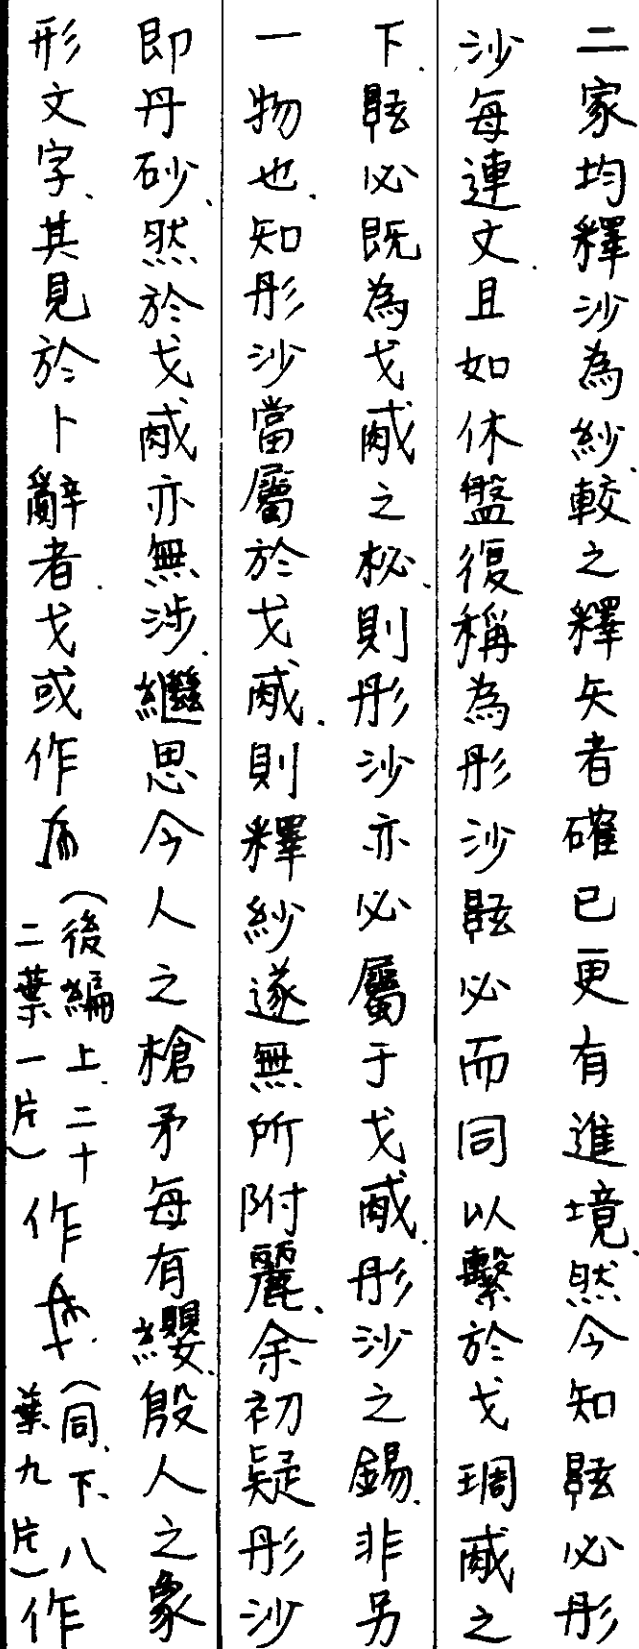 二家均釋沙為紗、較之釋矢者確已更有進境、然今知䝮必彤
沙每連文、且如休盤復稱為彤沙䝮必而同以繫於戈琱䤋之
下、䝮必既為戈䤋之柲、則彤沙亦必屬于戈䤋、彤沙之錫、非另
一物也、知彤沙當屬於戈䤋、則釋紗遂無所附麗、余初疑彤沙
即丹砂、然於戈䤋亦無涉、繼思今人之槍矛每有纓、殷人之象
形文字、其見於卜辭者、戈或作(後編上、二十二葉一片)作(同、下、八葉九片)作